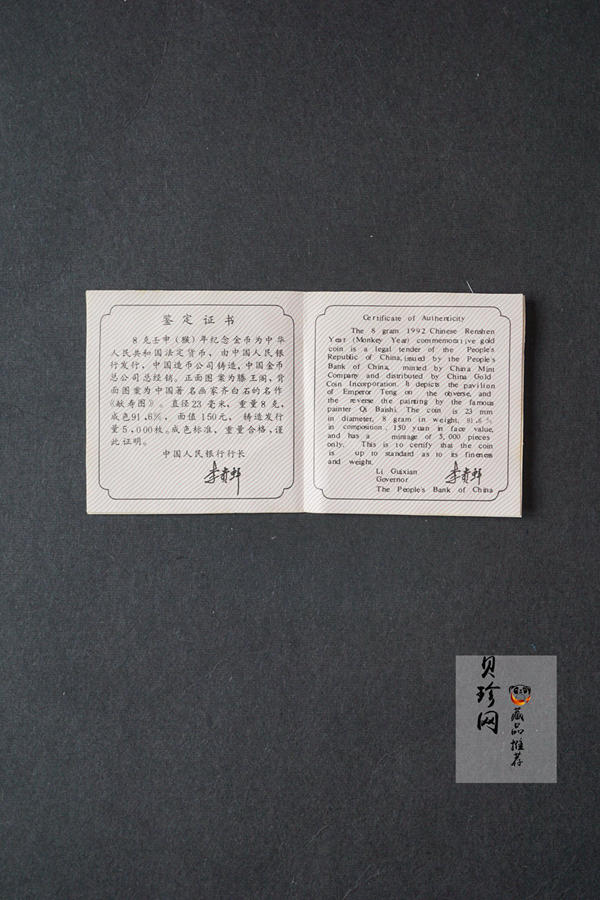 鉴定证书
8克壬申（猴）年纪念金币为中华
人民共和国法定货币，由中国人民银
行发行，中国造币公司铸造，中国金币
总公司总经销。正面图案为滕王阁，背
面图案为中国著名画家齐白石的名作
《献寿图》。直径23毫米，重量8克，
成色91.6%，面值150元，铸造发行
量5,000枚。成色标准，重量合格，谨
此证明。
中国人民银行行长
Certificate of Authenticity
The 8 gram 1992 Chinese Renshen
Year (Monkey Year) commemorative gold
coin is a legal tender of the People's
Republic of China, issued by the People's
Bank of China, minted by China Mint
Company and distributed by China Gold
Coin Incorporation. It depicts the pavilion
of Emperor Teng on the obverse, and
the reverse the painting by the famous
painter Qi Baishi. The coin is 23 mm
in diameter, 8 gram in weight, 91.6%
in composition, 150 yuan in face value,
and has a mintage of 5,000 pieces
only. This is to certify that the coin
is up to standard as to its fineness
and weight.
Li Guixian
Governor
The People's Bank of China
贝珍网
藏品推荐